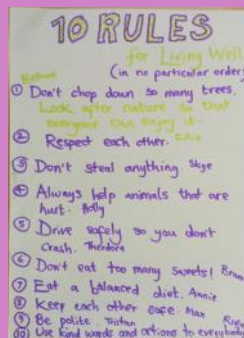 10 RULES
for Living Well
(in no particular order)
① Don't chop down so many trees.
Look after nature so that
everyone can enjoy it.
② Respect each other. Ellie
③ Don't steal anything Skye
④ Always help animals that are
hurt. Holly
⑤ Drive safely so you don't
crash. Theodore
⑥ Don't eat too many sweets!
⑦ Eat a balanced diet. Annie
⑧ Keep each other safe. Max
⑨ Be polite. Tristan
⑩ Use kind words and actions to everybody